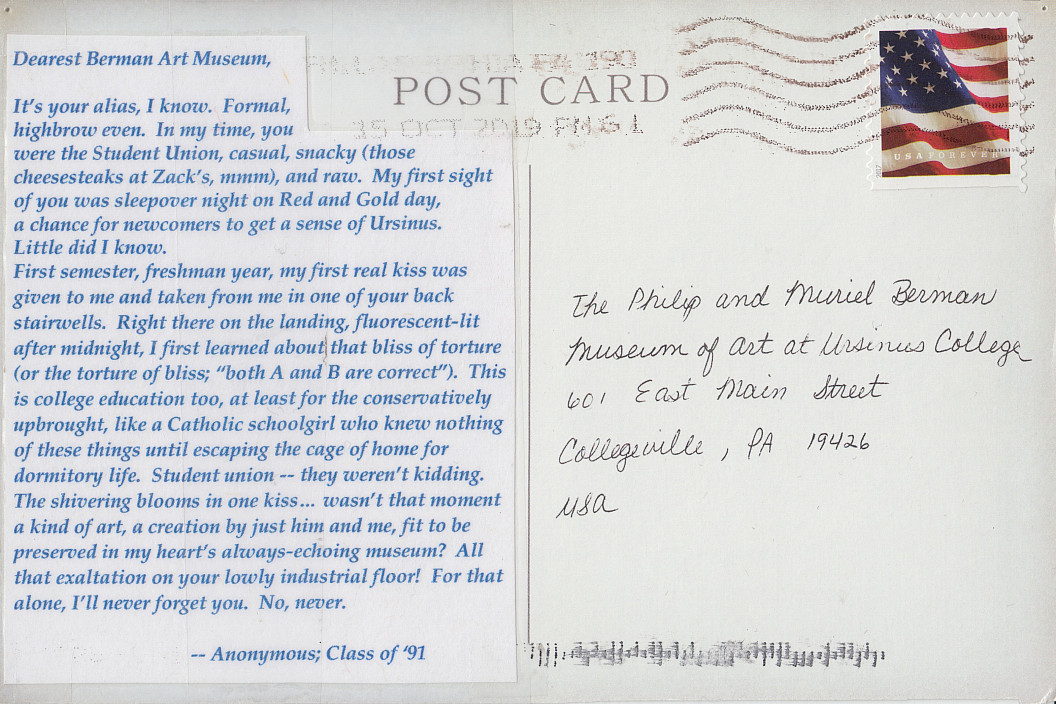 Dearest Berman Art Museum,
It's your alias, I know. Formal,
highbrow even. In my time, you
were the Student Union, casual, snacky (those
cheesesteaks at Zack's, mmm), and raw. My first sight
of you was sleepover night on Red and Gold day,
a chance for newcomers to get a sense of Ursinus.
Little did I know.
First semester, freshman year, my first real kiss was
given to me and taken from me in one of your back
stairwells. Right there on the landing, fluorescent-lit
after midnight, I first learned about that bliss of torture
(or the torture of bliss; "both A and B are correct"). This
is college education too, at least for the conservatively
upbrought, like a Catholic schoolgirl who knew nothing
of these things until escaping the cage of home for
dormitory life. Student union -- they weren't kidding.
The shivering blooms in one kiss... wasn't that moment
a kind of art, a creation by just him and me, fit to be
preserved in my heart's always-echoing museum? All
that exaltation on your lowly industrial floor! For that
alone, I'll never forget you. No, never.
-- Anonymous; Class of '91
PA 190
POST CARD
OCT 2019 PM
USA FOREVER
2017
The Philip and Muriel Berman
Museum of Art at Ursinus College
601 East Main Street
Collegeville, PA 19426
USA